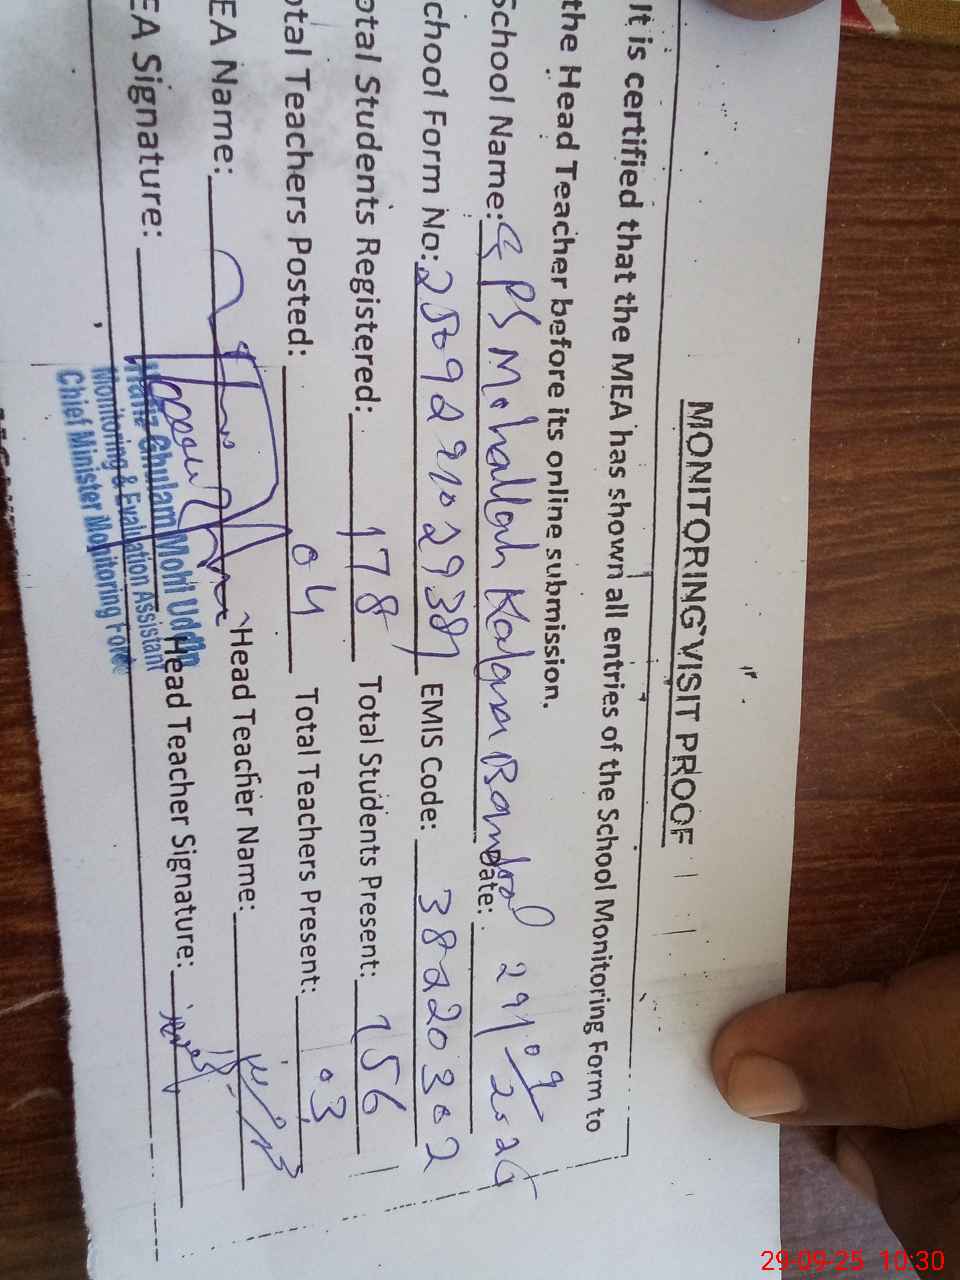 MONITORING VISIT PROOF
It is certified that the MEA has shown all entries of the School Monitoring Form to
the Head Teacher before its online submission.
School Name: GPS Mohallah Date: 29/09/2025
chool Form No: EMIS Code: 38220302
otal Students Registered: 178 Total Students Present: 156
otal Teachers Posted: 04 Total Teachers Present: 03
EA Name: Head Teacher Name:
EA Signature: Head Teacher Signature:
Ghulam Mohi Uddin
Monitoring & Evaluation Assistant
Chief Minister Monitoring Force
29-09-25 10:30